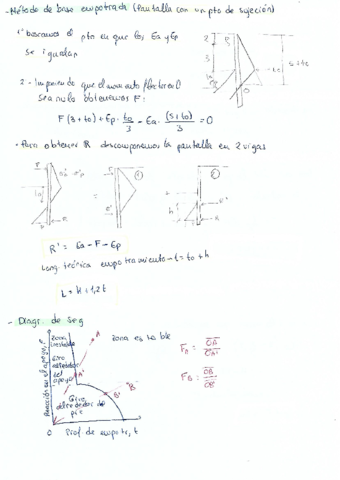 -Método de base empotrada (Pantalla con un pto de sujeción)
1º buscamos el pto en que los Ea y Ep
se igualan
2 - Imponiendo que el momento flector en O
sea nulo obtenemos F:
F(3 + to) + Ep · to/3 - Ea · (5+to)/3 = 0
- Para obtener R descomponemos la pantalla en 2 vigas
R' = Ea - F - Ep
Long. teórica empotramiento → t = to + h
L = H + 1,2t
- Diagr. de seg
zona estable
zona inestable
Giro alrededor del apoyo
Giro alrededor del pie
Reacción en el apoyo, F
A
A'
B
B'
FA = OA/OA'
FB = OB/OB'
O Prof de empotr, t